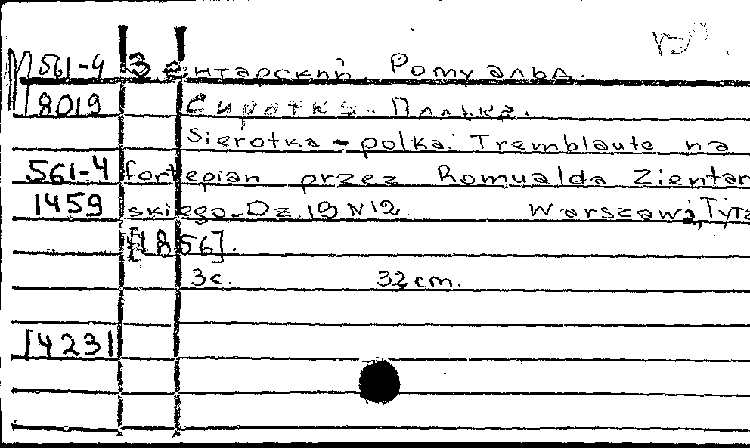 561-4 Зентарский, Ромуальд.
8019 Сиротка. Полька.
Sierotka - polka. Tremblante na
561-4 fortepian przez Romualda Zientar
1459 skiego. Dz. 19 N 12. Warszawa, Tyra
[1856].
3 с. 32 cm.
[423]